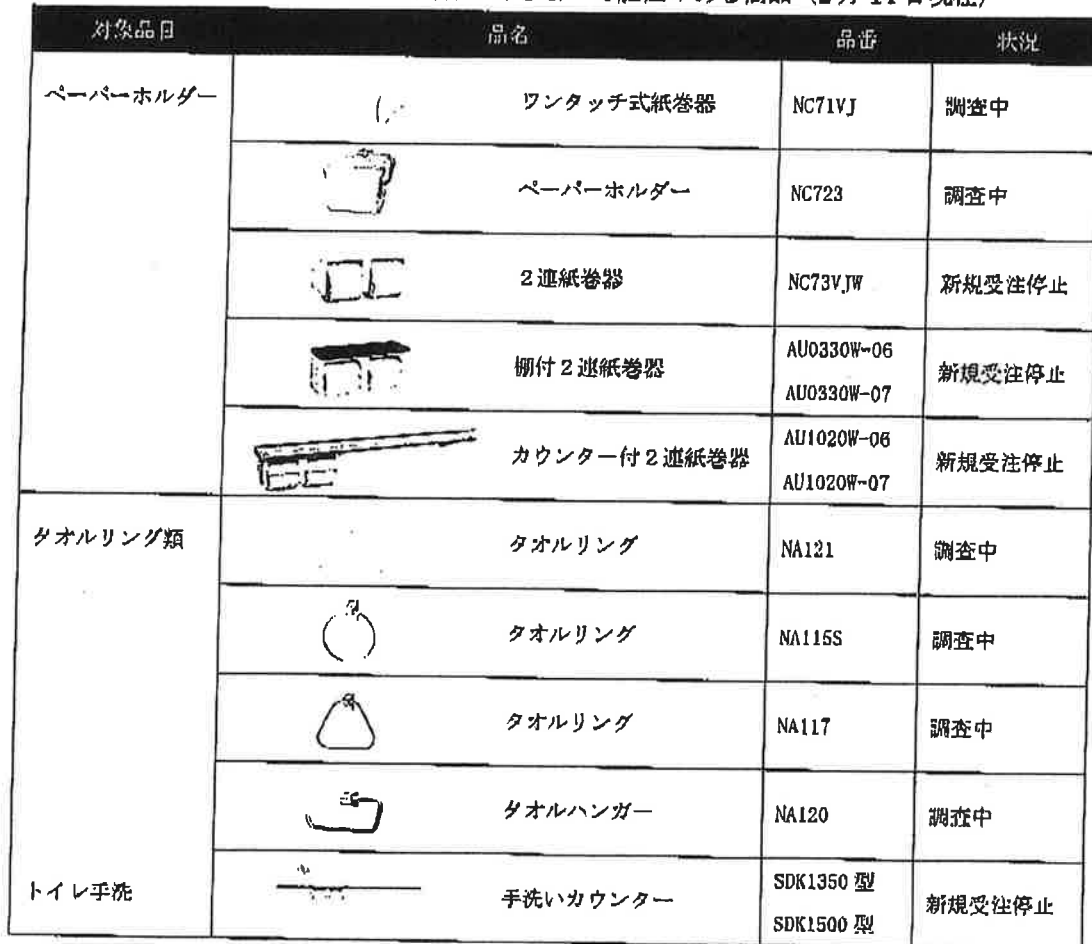 対象品目 品名 品番 状況
ペーパーホルダー ワンタッチ式紙巻器 NC71VJ 調査中
ペーパーホルダー NC723 調査中
2連紙巻器 NC73VJW 新規受注停止
棚付2連紙巻器 AU0330W-06 新規受注停止
AU0330W-07
カウンター付2連紙巻器 AU1020W-06 新規受注停止
AU1020W-07
タオルリング類 タオルリング NA121 調査中
タオルリング NA115S 調査中
タオルリング NA117 調査中
タオルハンガー NA120 調査中
トイレ手洗 手洗いカウンター SDK1350型 新規受注停止
SDK1500型